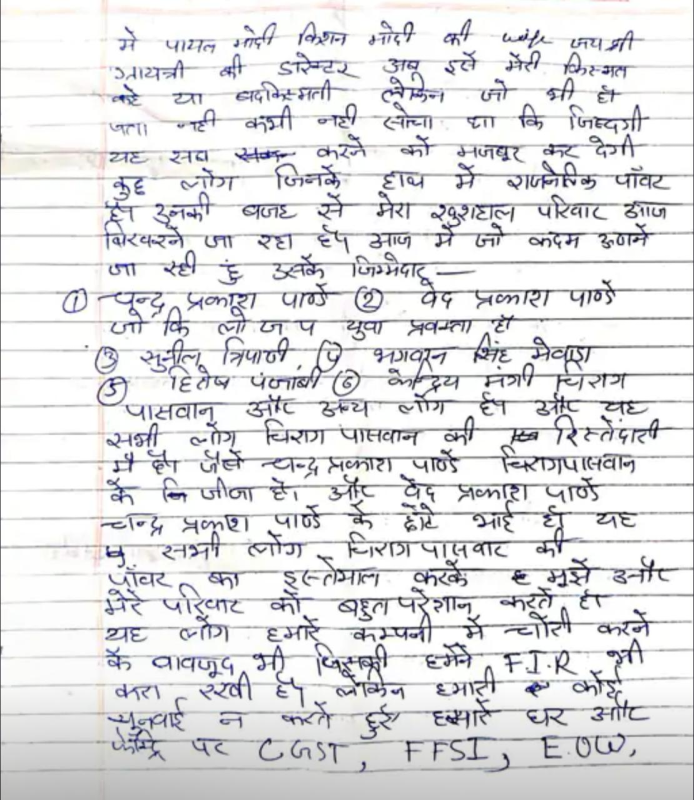 मे पायल मोदी किशन मोदी की wife जयश्री
गायत्री की डारेक्टर अब इसे मेरी किस्मत
कहे या बदकिस्मती लेकिन जो भी हो
पता नही कभी नही सोचा था कि जिन्दगी
यह सब करने को मजबूर कर देगी
कुछ लोग जिनके हाथ में राजनेतिक पॉवर
है। उनकी बजह से मेरा खुशहाल परिवार आज
बिखरने जा रहा है आज में जो कदम उठाने
जा रही हुं उसके जिम्मेदार —
① चन्द्र प्रकाश पाण्डे ② वेद प्रकाश पाण्डे
जो कि लो ज प युवा प्रवक्ता है
③ सुनील त्रिपाठी ④ भगवान सिंह मेवाड़ा
⑤ हितेष पंजाबी ⑥ केन्द्रिय मंत्री चिराग
पासवान और अन्य लोग है। और यह
सभी लोग चिराग पासवान की रिस्तेदारी
मै है। जैसे चन्द्र प्रकाश पाण्डे चिरागपासवान
के जीजा है। और वेद प्रकाश पाण्डे
चन्द्र प्रकाश पाण्डे के छोटे भाई है यह
सभी लोग चिराग पासवाट की
पॉवर का इस्तेमाल करके मुझे और
मेरे परिवार को बहुत परेशान करते है।
यह लोग हमारे कम्पनी में चोरी करने
के वावजूद भी जिसकी हमने F.I.R भी
करा रखी है लेकिन हमारी कोई
सूनवाई न करते हुए हमारे घर और
फेक्ट्रि पर CGST, FFSI, E.OW,